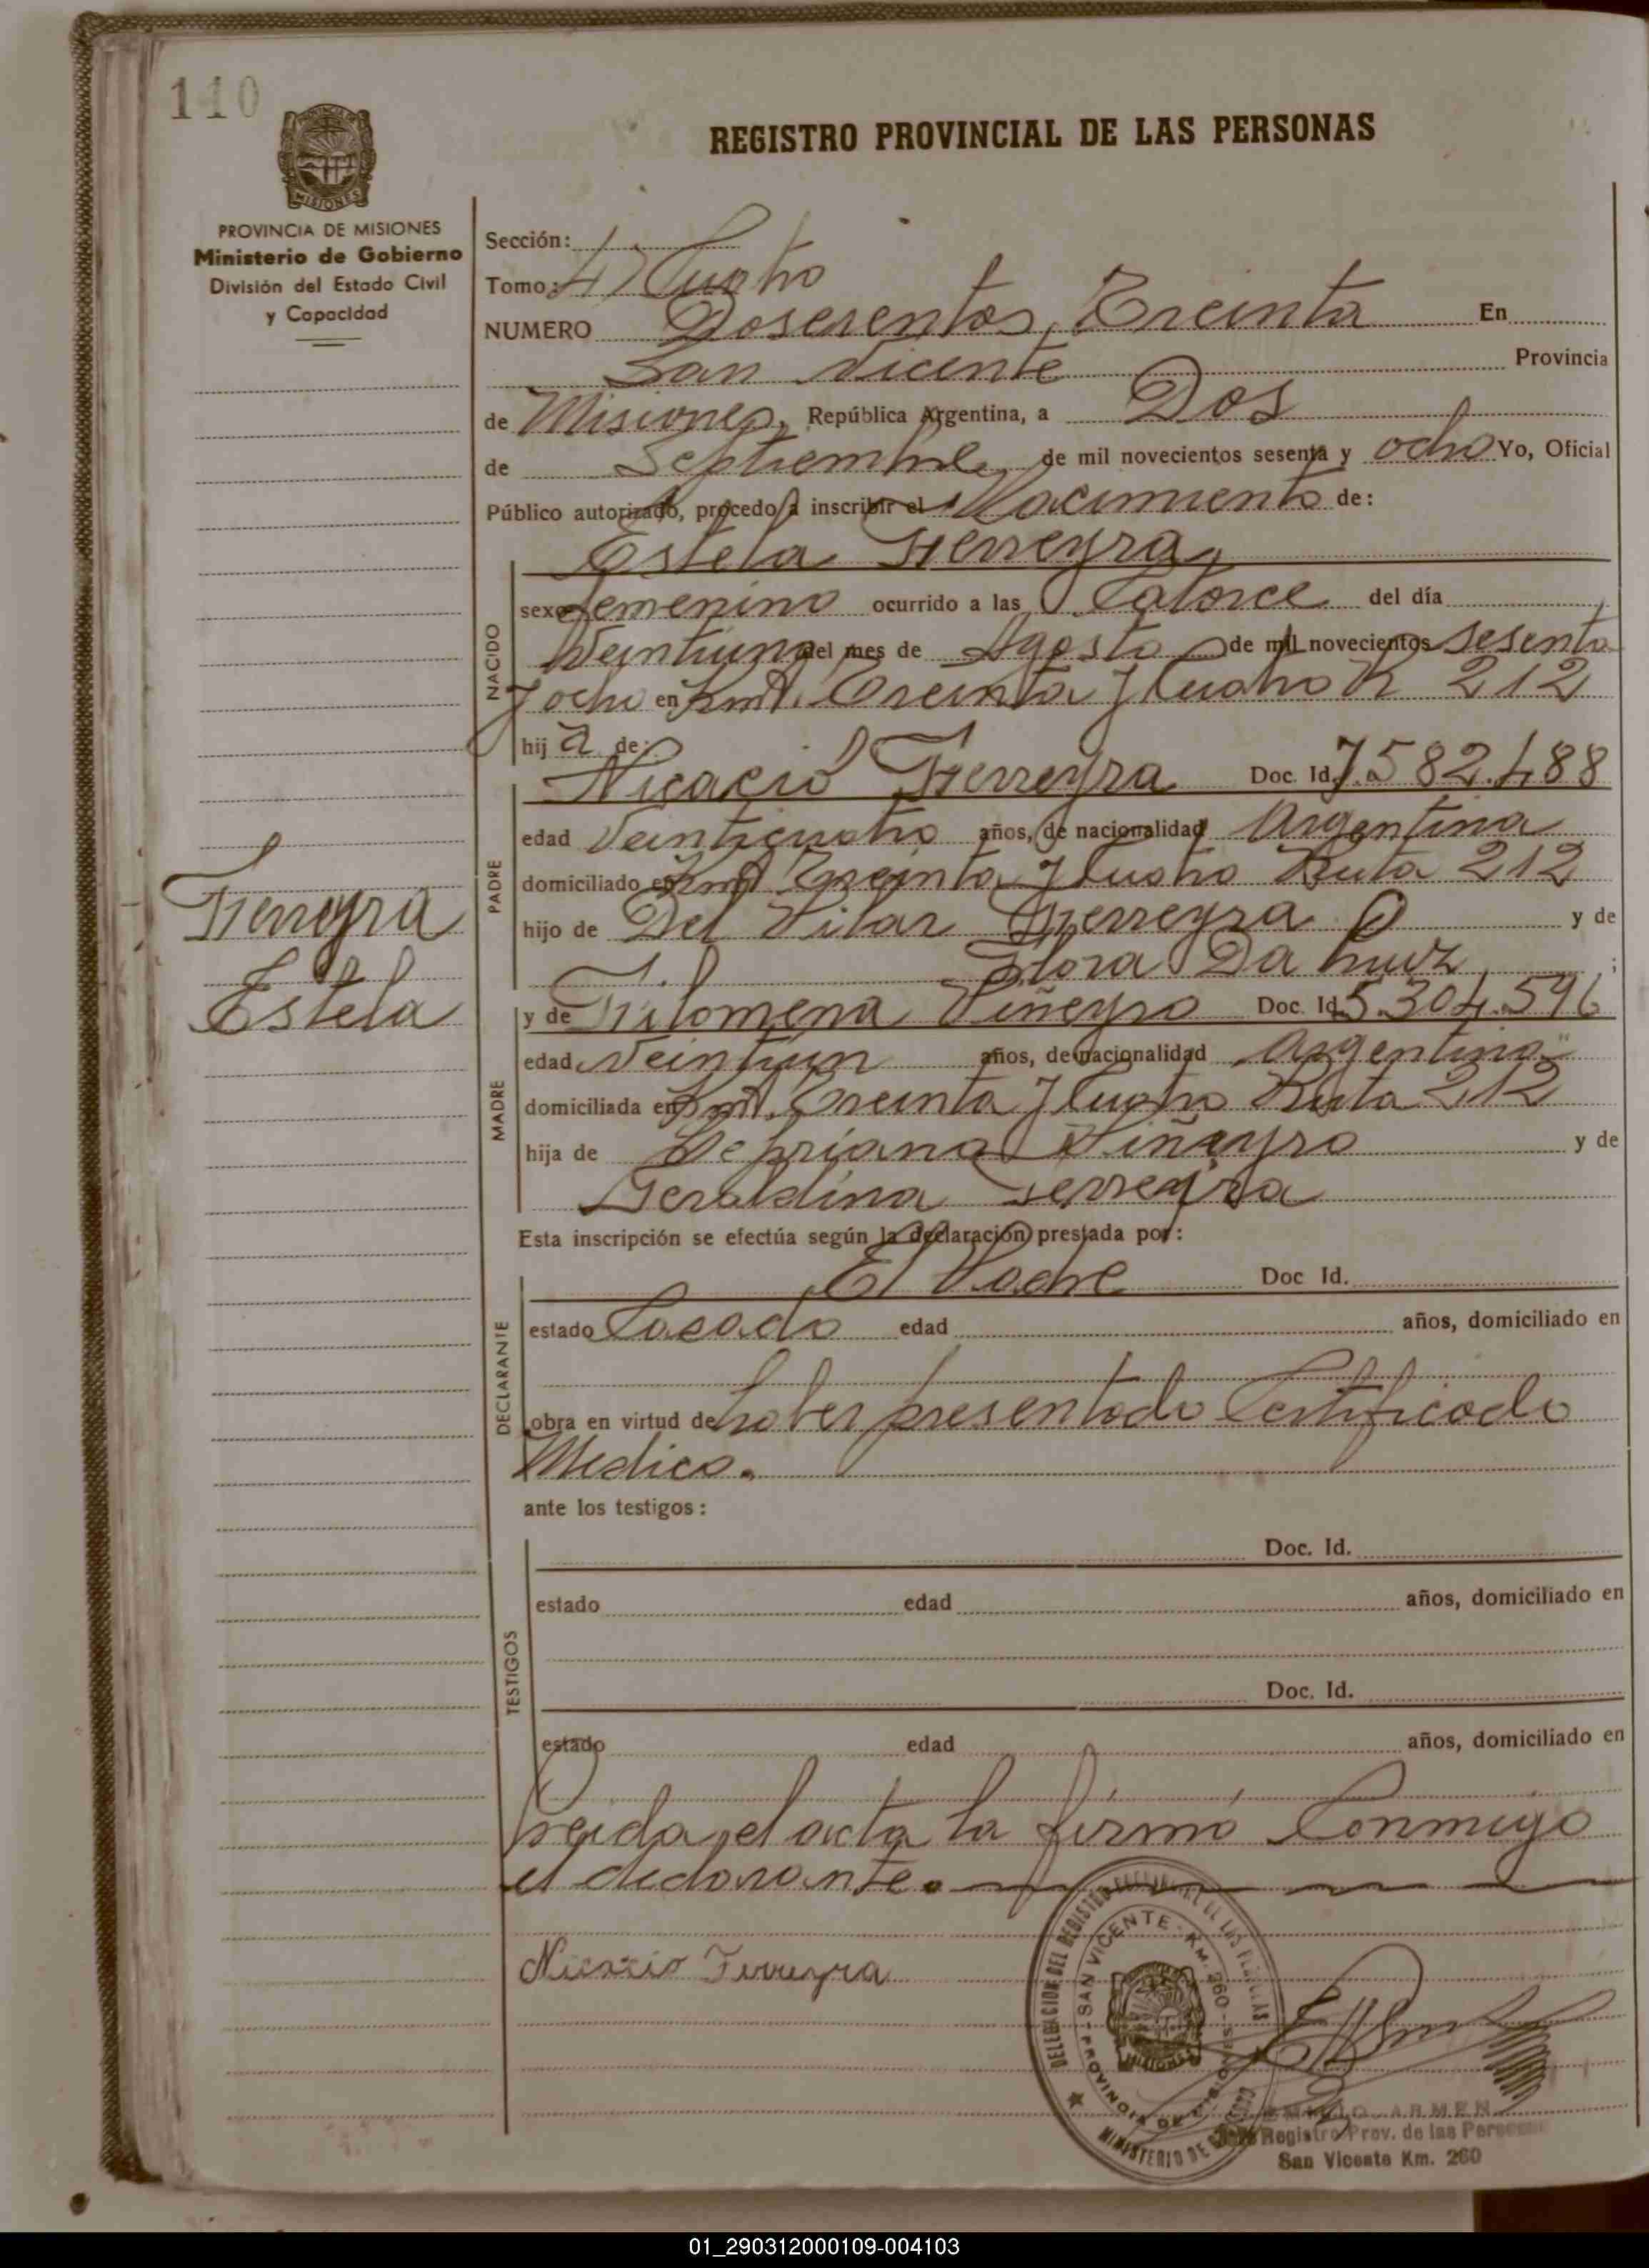 110
PROVINCIA DE
MISIONES
PROVINCIA DE MISIONES
Ministerio de Gobierno
División del Estado Civil
y Capacidad
REGISTRO PROVINCIAL DE LAS PERSONAS
Sección:
Tomo: 4) Cuatro
NUMERO Doscientos, Treinta En
San Vicente Provincia
de Misiones, República Argentina, a Dos
de Septiembre de mil novecientos sesenta y ocho Yo, Oficial
Público autorizado, procedo a inscribir el Nacimiento de:
Estela Ferreyra
NACIDO
sexo femenino ocurrido a las Catorce del día
Veintiuno del mes de Agosto de mil novecientos sesenta
y ocho en Kmt. Treinta y Cuatro R 212
hij a de:
Nicacio Ferreyra Doc. Id. 7.582.488
PADRE
edad Veinticuatro años, de nacionalidad Argentina
domiciliado en Kmt Treinta y Cuatro Ruta 212
hijo de Del Pilar Ferreyra y de
Flora Da Cruz ;
Ferreyra
Estela
MADRE
y de Filomena Viñeyro Doc. Id. 5.304.596
edad Veintiun años, de nacionalidad Argentina
domiciliada en Kmt. Treinta y Cuatro Ruta 212
hija de Viñeyro y de
Geraldina Ferreyra
Esta inscripción se efectúa según la declaración prestada por:
DECLARANTE
El Padre Doc Id.
estado Casado edad años, domiciliado en
obra en virtud de haber presentado Certificado
Medico.
ante los testigos:
TESTIGOS
Doc. Id.
estado edad años, domiciliado en
Doc. Id.
estado edad años, domiciliado en
Leida el acta la firmó Conmigo
el declarante.
Nicacio Ferreyra
DELEGACION DEL REGISTRO PROVINCIAL DE LAS PERSONAS
SAN VICENTE - KM. 260 - MISIONES
PROVINCIA DE
MISIONES
MINISTERIO DE GOBIERNO
ARMEN
Registro Prov. de las Personas
San Vicente Km. 260
01_290312000109-004103